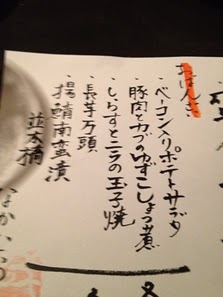 おばんざい
・ベーコン入りポテトサラダ
・豚肉とカブのゆずこしょう煮
・しらすとニラの玉子焼
・長芋万頭
・揚鯖南蛮漬
並木橋
なかひがし